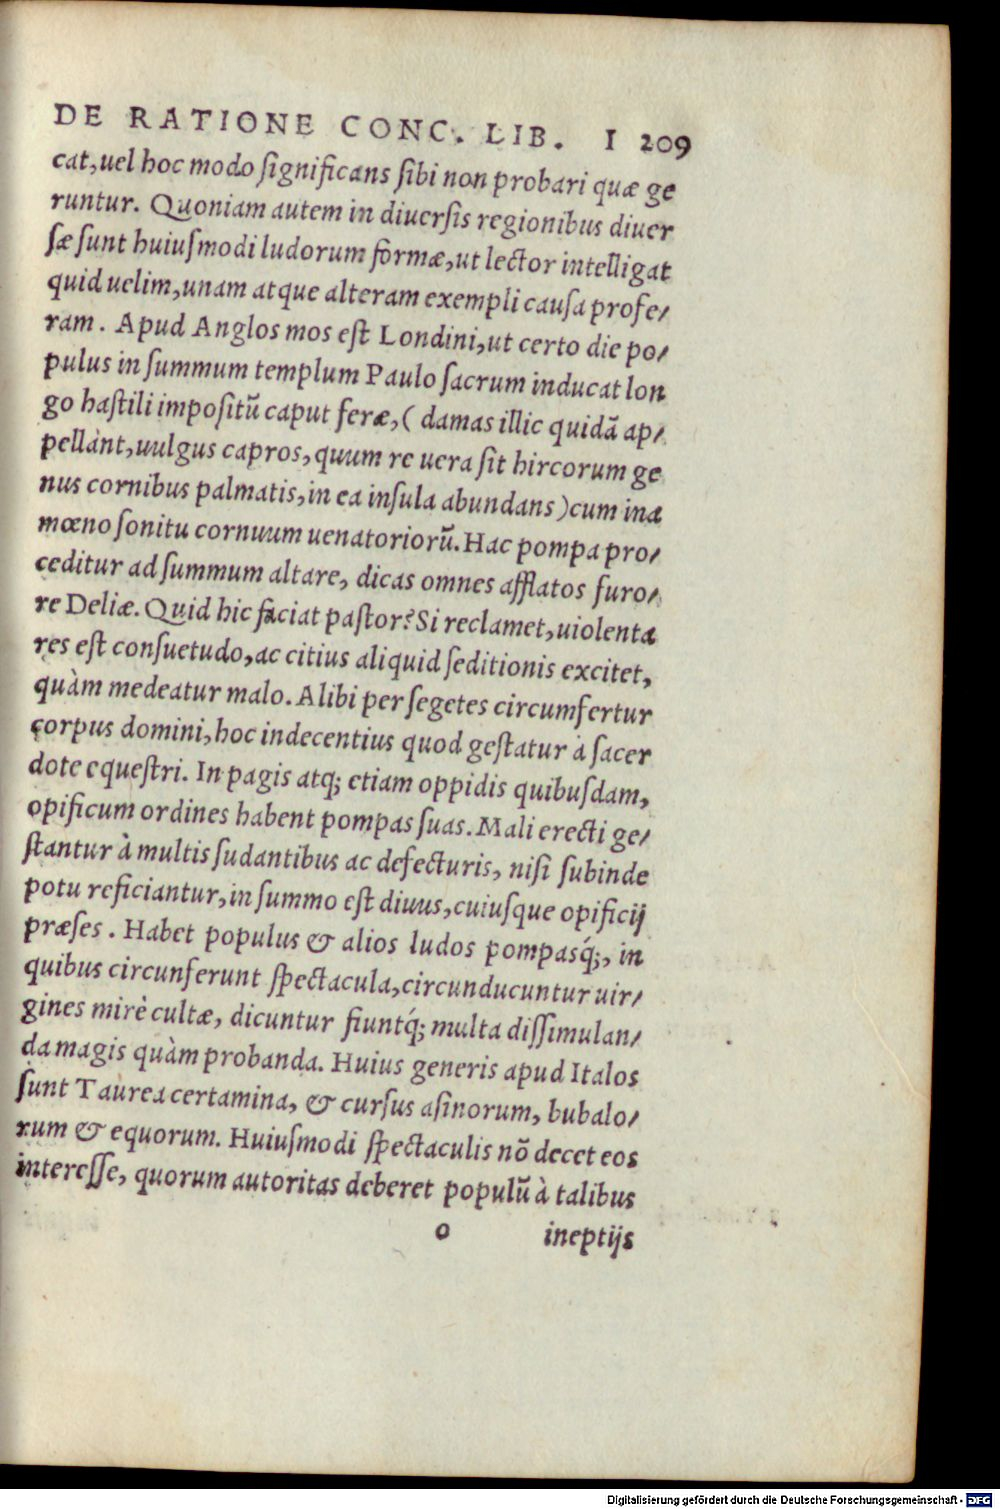 DE RATIONE CONC. LIB. I 209
cat, uel hoc modo ſignificans ſibi non probari quæ ge
runtur. Quoniam autem in diuerſis regionibus diuer
ſæ ſunt huiuſmodi ludorum formæ, ut lector intelligat
quid uelim, unam atque alteram exempli cauſa profe/
ram. Apud Anglos mos eſt Londini, ut certo die po/
pulus in ſummum templum Paulo ſacrum inducat lon
go haſtili impoſitũ caput feræ, ( damas illic quidã ap/
pellant, uulgus capros, quum re uera ſit hircorum ge
nus cornibus palmatis, in ea inſula abundans) cum ina
mœno ſonitu cornuum uenatoriorũ. Hac pompa pro/
ceditur ad ſummum altare, dicas omnes afflatos furo/
re Deliæ. Quid hic faciat paſtor? Si reclamet, uiolenta
res eſt conſuetudo, ac citius aliquid ſeditionis excitet,
quàm medeatur malo. Alibi per ſegetes circumfertur
corpus domini, hoc indecentius quod geſtatur à ſacer
dote equeſtri. In pagis atq; etiam oppidis quibuſdam,
opificum ordines habent pompas ſuas. Mali erecti ge/
ſtantur à multis ſudantibus ac defecturis, niſi ſubinde
potu reficiantur, in ſummo eſt diuus, cuiuſque opificij
præſes. Habet populus & alios ludos pompasq́;, in
quibus circunferunt ſpectacula, circunducuntur uir/
gines mirè cultæ, dicuntur fiuntq́; multa diſſimulan/
da magis quàm probanda. Huius generis apud Italos
ſunt Taurea certamina, & curſus aſinorum, bubalo/
rum & equorum. Huiuſmodi ſpectaculis nõ decet eos
intereſſe, quorum autoritas deberet populũ à talibus
o ineptijs
Digitalisierung gefördert durch die Deutsche Forschungsgemeinschaft - DFG